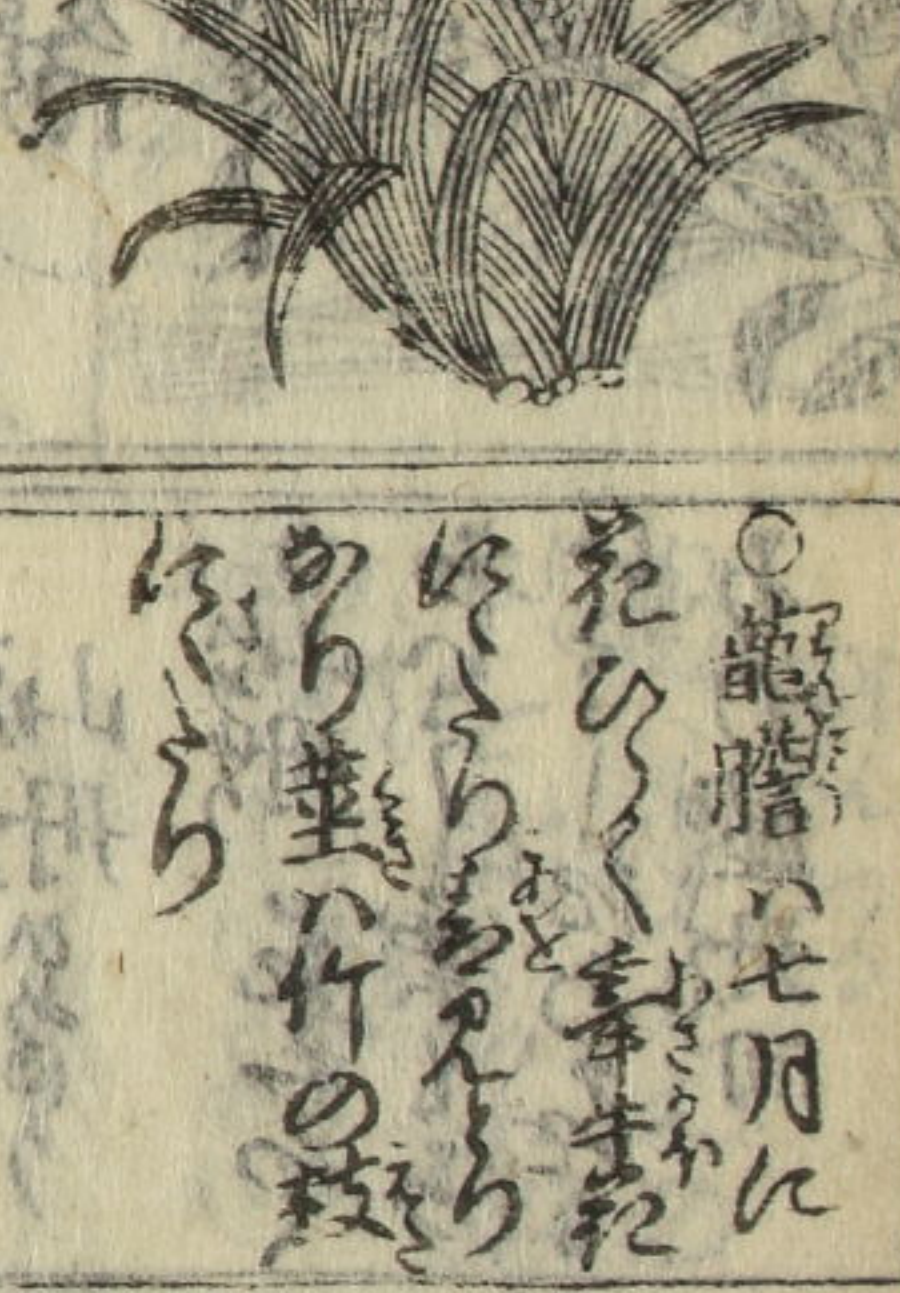 ○龍膽ハ七月に
花ひらく牽牛花
にたり青見とり
なり茎ハ竹の枝
にたり